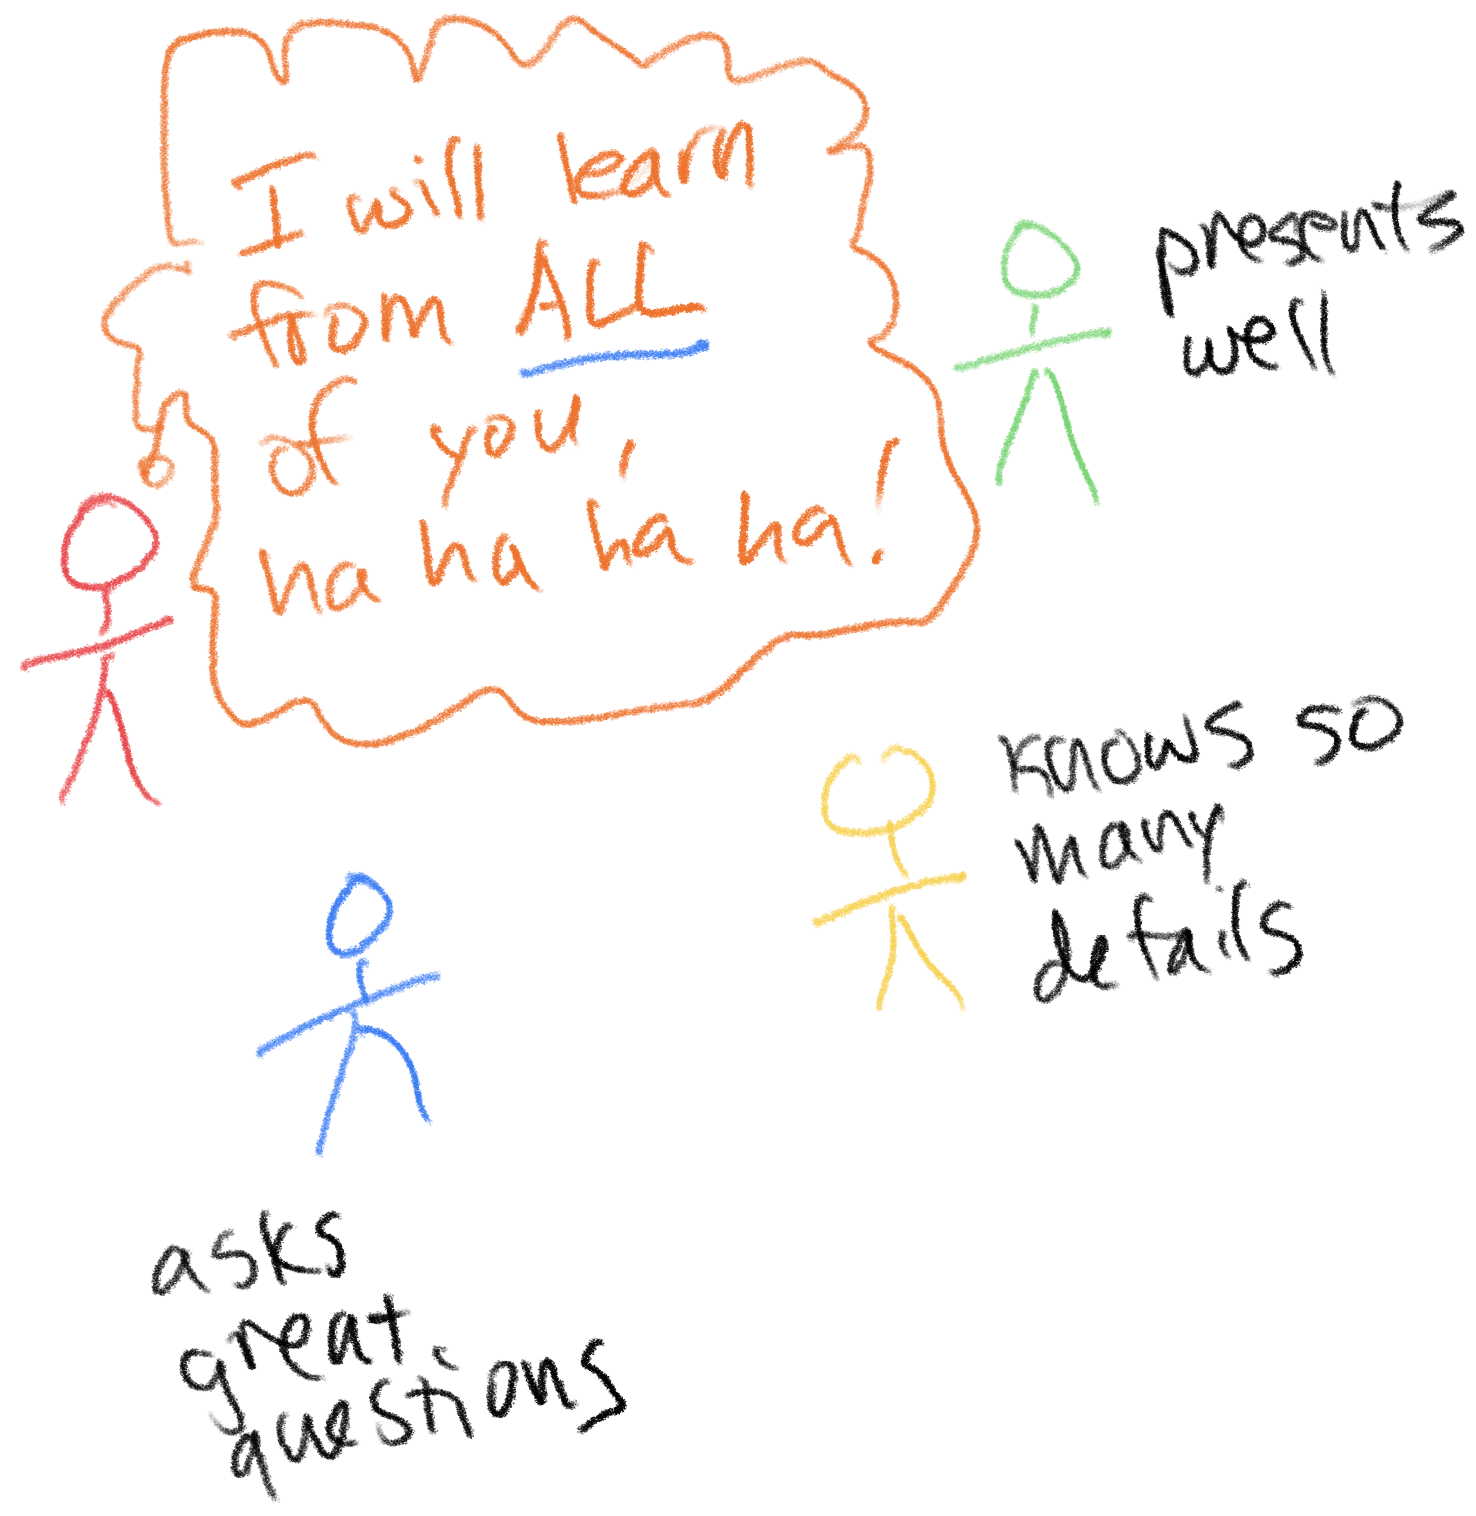 I will learn
from ALL
of you,
ha ha ha ha!
presents
well
knows so
many
details
asks
great
questions